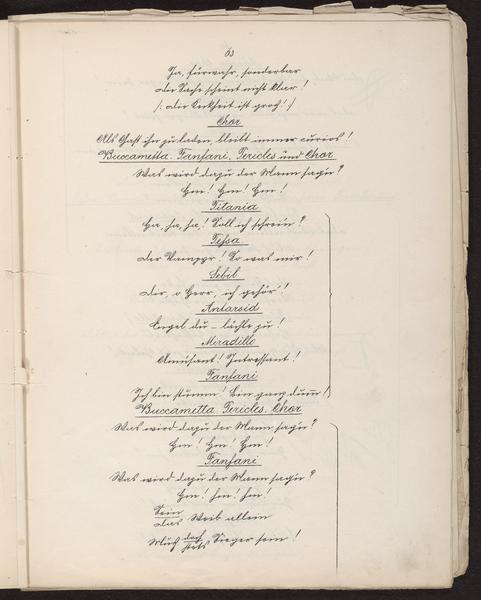 63
Ja, fürwahr, sonderbar
die Sache scheint nicht klar!
/: die Keckheit ist groß! :/
Chor
Als Gast ihn zu laden, bleibt immer curios!
Buccametta. Fanfani. Pericles und Chor
Was wird dazu der Mann sag'n?
Hm! Hm! Hm!
Titania
Ha, ha, ha! Soll ich schrein?
Tessa
der Vampyr! So was mir!
Sibil
dir, o Herr, ich gehör'!
Antarsid
Engel du – lächle zu!
Miradillo
Amüsant! Intressant!
Fanfani
Ich bin stumm! Bin ganz dumm!
Buccametta. Pericles. Chor
Was wird dazu der Mann sag'n?
Hm! Hm! Hm!
Fanfani
Was wird dazu der Mann sag'n?
Hm! hm! hm!
Sein
das Weib allein
Muß doch Sieger sein!
stets